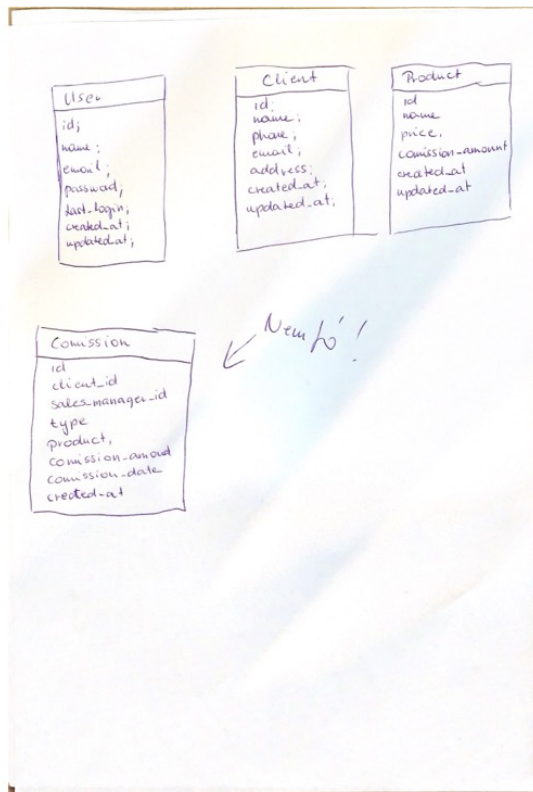 User
id;
name;
email;
password;
last_login;
created_at;
updated_at;
Client
id;
name;
phone;
email;
address;
created_at;
updated_at;
Product
id
name
price,
comission_amount
created_at
updated_at
Comission
id
client_id
sales_manager_id
type
product,
comission_amount
comission_date
created_at
Nem jó!